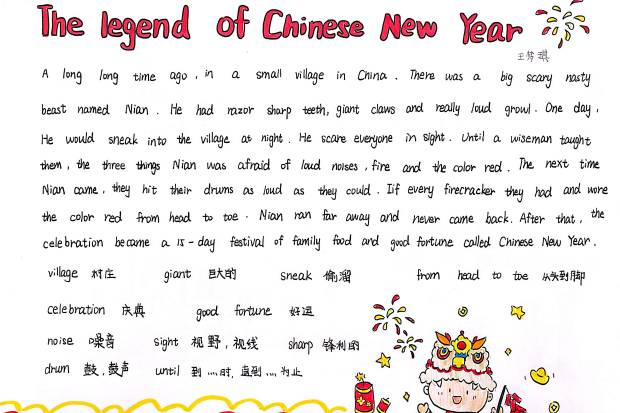 The legend of Chinese New Year
王梦琪
A long long time ago, in a small village in China. There was a big scary nasty
beast named Nian. He had razor sharp teeth, giant claws and really loud growl. One day,
He would sneak into the village at night. He scare everyone in sight. Until a wiseman taught
them, the three things Nian was afraid of loud noises, fire and the color red. The next time
Nian came, they hit their drums as loud as they could. Iif every firecracker they had and wore
the color red from head to toe. Nian ran far away and never came back. After that, the
celebration became a 15-day festival of family food and good fortune called Chinese New Year.
village 村庄 giant 巨大的 sneak 偷溜 from head to toe 从头到脚
celebration 庆典 good fortune 好运
noise 噪音 sight 视野,视线 sharp 锋利的
drum 鼓,鼓声 until 到....时,直到....为止